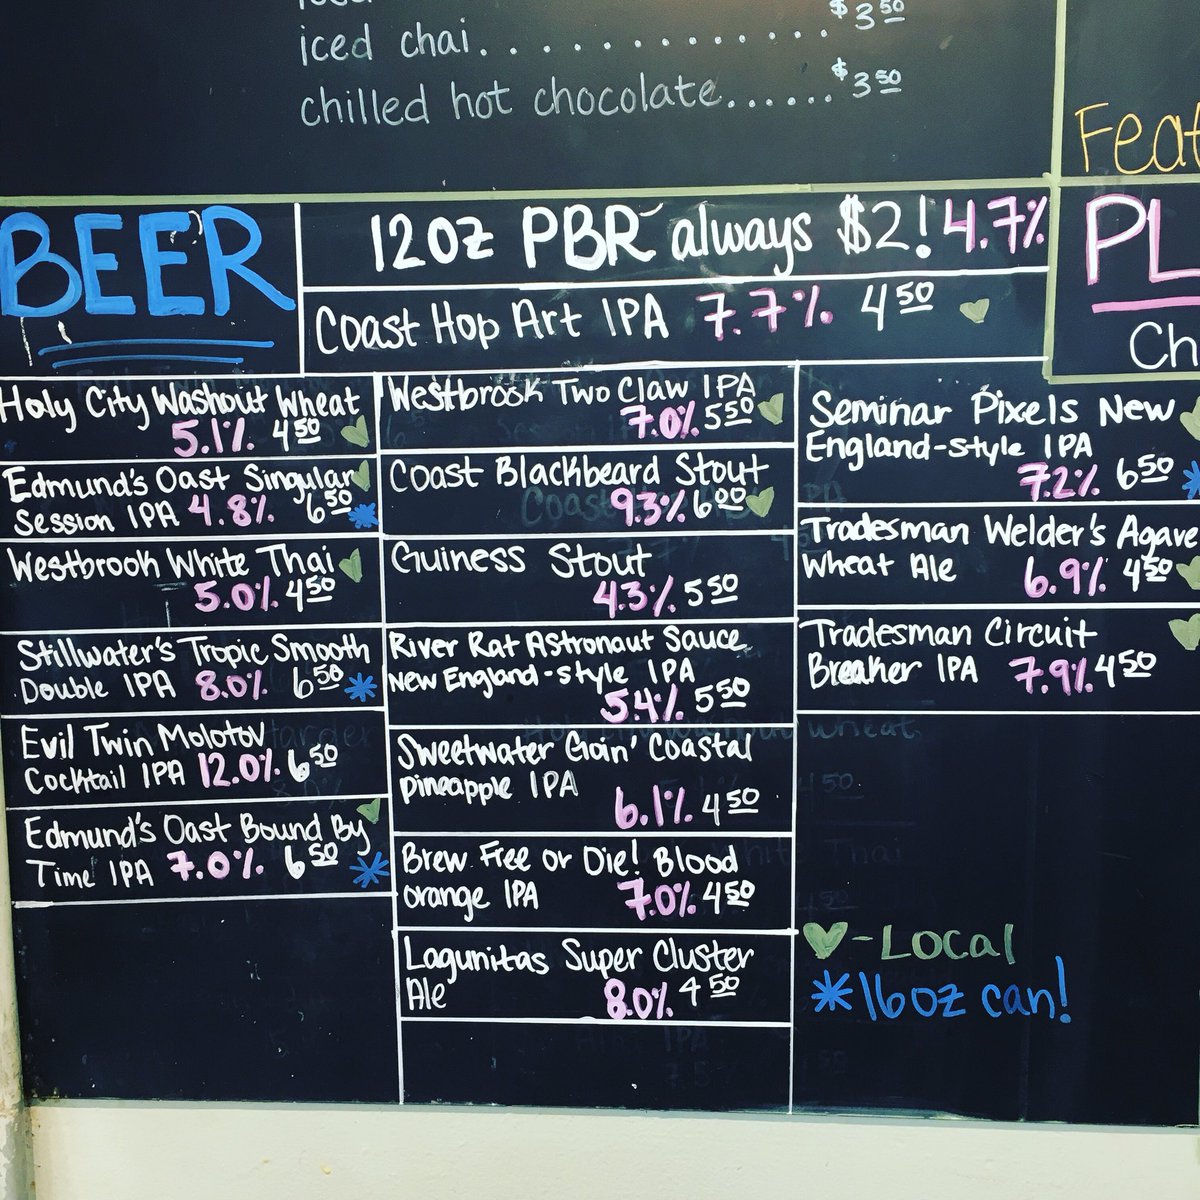 iced chai.............. $3 50
chilled hot chocolate...... $3 50
Feat
BEER
12oz PBR always $2! 4.7%
PL
Coast Hop Art IPA 7.7% 4 50
Ch
Holy City Washout Wheat
5.1% 4 50
Edmund's Oast Singular
Session IPA 4.8% 6 50 *
Westbrook White Thai
5.0% 4 50
Stillwater's Tropic Smooth
Double IPA 8.0% 6 50 *
Evil Twin Molotov
Cocktail IPA 12.0% 6 50
Edmund's Oast Bound By
Time IPA 7.0% 6 50 *
Westbrook Two Claw IPA
7.0% 5 50
Coast Blackbeard Stout
9.3% 6 00
Guiness Stout
4.3% 5 50
River Rat Astronaut Sauce
New England-style IPA
5.4% 5 50
Sweetwater Goin' Coastal
Pineapple IPA
6.1% 4 50
Brew Free or Die! Blood
Orange IPA 7.0% 4 50
Lagunitas Super Cluster
Ale 8.0% 4 50
Seminar Pixels New
England-style IPA
7.2% 6 50 *
Tradesman Welder's Agave
Wheat Ale 6.9% 4 50
Tradesman Circuit
Breaker IPA 7.9% 4 50
♥-Local
*16oz can!